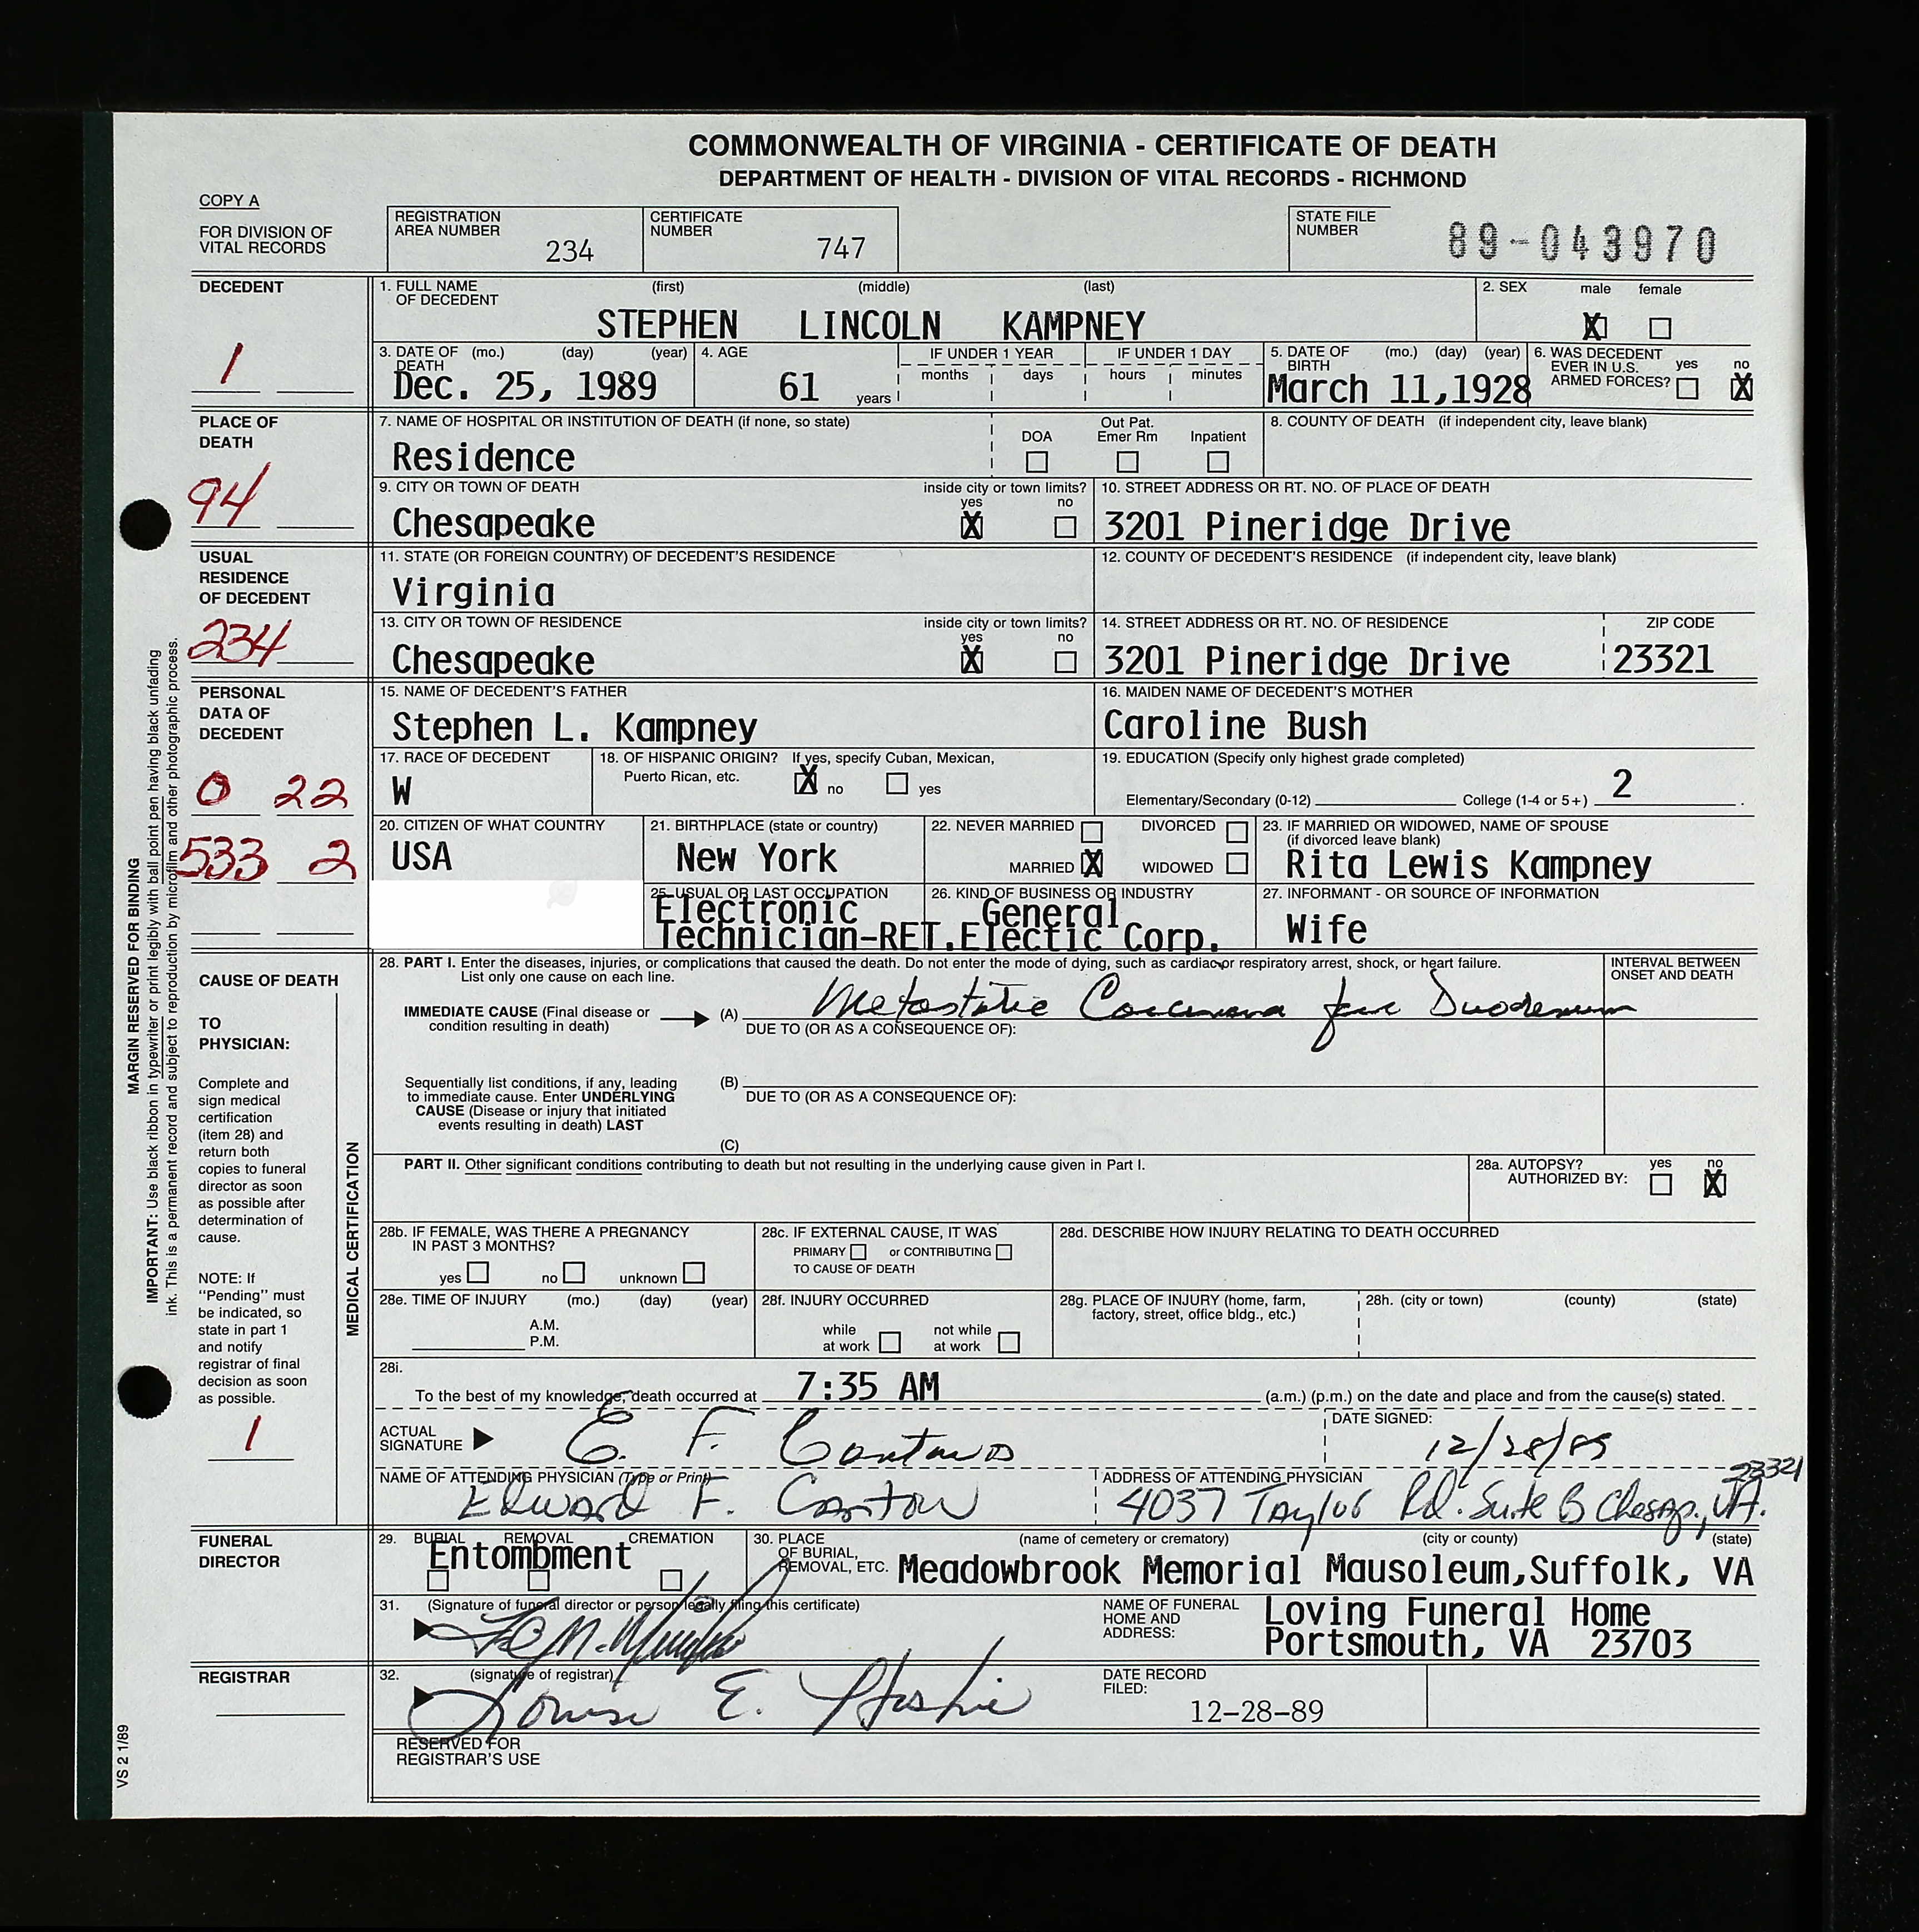 COMMONWEALTH OF VIRGINIA - CERTIFICATE OF DEATH
DEPARTMENT OF HEALTH - DIVISION OF VITAL RECORDS - RICHMOND
COPY A
FOR DIVISION OF
VITAL RECORDS
REGISTRATION
AREA NUMBER 234
CERTIFICATE
NUMBER 747
STATE FILE
NUMBER 89-043970
DECEDENT
1
1. FULL NAME (first) (middle) (last)
OF DECEDENT
STEPHEN LINCOLN KAMPNEY
2. SEX male female
X
3. DATE OF (mo.) (day) (year)
DEATH
Dec. 25, 1989
4. AGE
61 years
IF UNDER 1 YEAR
months days
IF UNDER 1 DAY
hours minutes
5. DATE OF (mo.) (day) (year)
BIRTH
March 11,1928
6. WAS DECEDENT
EVER IN U.S. yes no
ARMED FORCES? X
PLACE OF
DEATH
94
7. NAME OF HOSPITAL OR INSTITUTION OF DEATH (if none, so state)
Residence
DOA
Out Pat.
Emer Rm
Inpatient
8. COUNTY OF DEATH (if independent city, leave blank)
9. CITY OR TOWN OF DEATH
Chesapeake
inside city or town limits?
yes no
X
10. STREET ADDRESS OR RT. NO. OF PLACE OF DEATH
3201 Pineridge Drive
USUAL
RESIDENCE
OF DECEDENT
234
11. STATE (OR FOREIGN COUNTRY) OF DECEDENT'S RESIDENCE
Virginia
12. COUNTY OF DECEDENT'S RESIDENCE (if independent city, leave blank)
13. CITY OR TOWN OF RESIDENCE
Chesapeake
inside city or town limits?
yes no
X
14. STREET ADDRESS OR RT. NO. OF RESIDENCE
3201 Pineridge Drive
ZIP CODE
23321
PERSONAL
DATA OF
DECEDENT
0 22
533 2
15. NAME OF DECEDENT'S FATHER
Stephen L. Kampney
16. MAIDEN NAME OF DECEDENT'S MOTHER
Caroline Bush
17. RACE OF DECEDENT
W
18. OF HISPANIC ORIGIN? If yes, specify Cuban, Mexican,
Puerto Rican, etc. X no yes
19. EDUCATION (Specify only highest grade completed)
Elementary/Secondary (0-12) College (1-4 or 5+) 2
20. CITIZEN OF WHAT COUNTRY
USA
21. BIRTHPLACE (state or country)
New York
22. NEVER MARRIED DIVORCED
MARRIED X WIDOWED
23. IF MARRIED OR WIDOWED, NAME OF SPOUSE
(if divorced leave blank)
Rita Lewis Kampney
25. USUAL OR LAST OCCUPATION
Electronic
Technician-RET.
26. KIND OF BUSINESS OR INDUSTRY
General
Electic Corp.
27. INFORMANT - OR SOURCE OF INFORMATION
Wife
CAUSE OF DEATH
TO
PHYSICIAN:
Complete and
sign medical
certification
(item 28) and
return both
copies to funeral
director as soon
as possible after
determination of
cause.
NOTE: If
"Pending" must
be indicated, so
state in part 1
and notify
registrar of final
decision as soon
as possible.
1
MEDICAL CERTIFICATION
28. PART I. Enter the diseases, injuries, or complications that caused the death. Do not enter the mode of dying, such as cardiac or respiratory arrest, shock, or heart failure.
List only one cause on each line.
INTERVAL BETWEEN
ONSET AND DEATH
IMMEDIATE CAUSE (Final disease or
condition resulting in death)
(A) Metastatic Carcinoma from Duodenum
DUE TO (OR AS A CONSEQUENCE OF):
Sequentially list conditions, if any, leading
to immediate cause. Enter UNDERLYING
CAUSE (Disease or injury that initiated
events resulting in death) LAST
(B)
DUE TO (OR AS A CONSEQUENCE OF):
(C)
PART II. Other significant conditions contributing to death but not resulting in the underlying cause given in Part I.
28a. AUTOPSY? yes no
AUTHORIZED BY: X
28b. IF FEMALE, WAS THERE A PREGNANCY
IN PAST 3 MONTHS?
yes no unknown
28c. IF EXTERNAL CAUSE, IT WAS
PRIMARY or CONTRIBUTING
TO CAUSE OF DEATH
28d. DESCRIBE HOW INJURY RELATING TO DEATH OCCURRED
28e. TIME OF INJURY (mo.) (day) (year)
A.M.
P.M.
28f. INJURY OCCURRED
while
at work
not while
at work
28g. PLACE OF INJURY (home, farm,
factory, street, office bldg., etc.)
28h. (city or town) (county) (state)
28i.
To the best of my knowledge, death occurred at 7:35 AM (a.m.) (p.m.) on the date and place and from the cause(s) stated.
ACTUAL
SIGNATURE
E. F.
DATE SIGNED:
12/28/89
NAME OF ATTENDING PHYSICIAN (Type or Print)
Edward F. Canton
ADDRESS OF ATTENDING PHYSICIAN 23321
4037 Taylor Rd. Suite B Chesap., VA.
FUNERAL
DIRECTOR
29. BURIAL REMOVAL CREMATION
Entombment
30. PLACE
OF BURIAL,
REMOVAL, ETC.
(name of cemetery or crematory) (city or county) (state)
Meadowbrook Memorial Mausoleum,Suffolk, VA
31. (Signature of funeral director or person legally filing this certificate)
NAME OF FUNERAL
HOME AND
ADDRESS:
Loving Funeral Home
Portsmouth, VA 23703
REGISTRAR
32. (signature of registrar)
Louise E.
DATE RECORD
FILED:
12-28-89
RESERVED FOR
REGISTRAR'S USE
MARGIN RESERVED FOR BINDING
IMPORTANT: Use black ribbon in typewriter or print legibly with ball point pen having black unfading
ink. This is a permanent record and subject to reproduction by microfilm and other photographic process.
VS 2 1/89